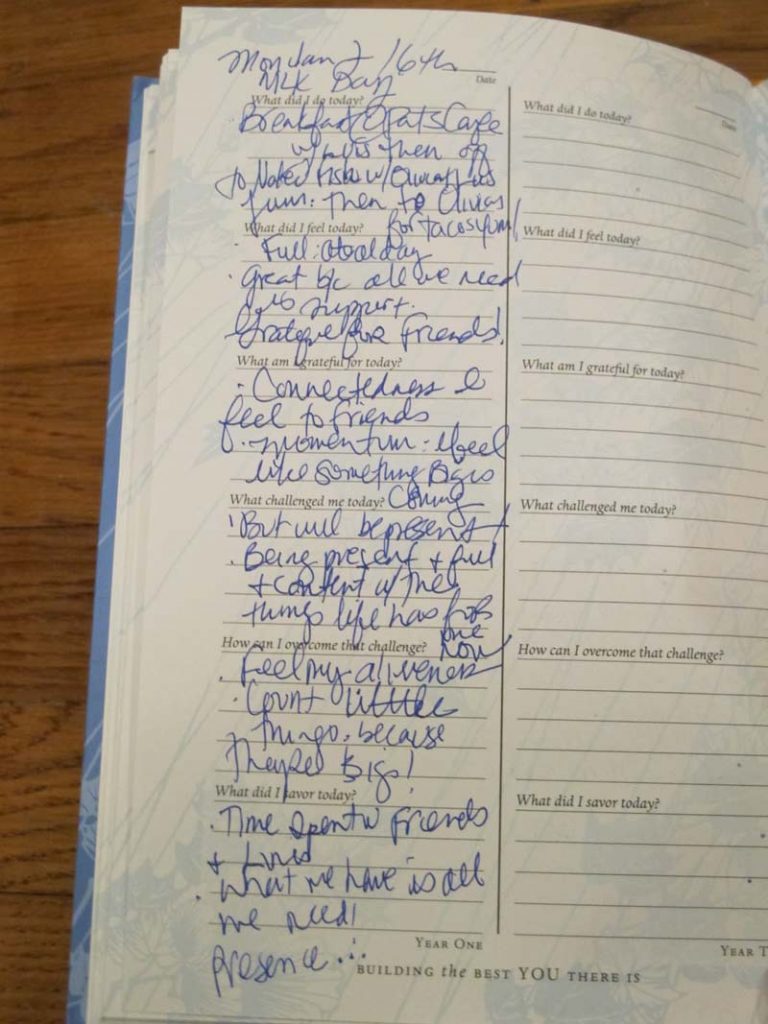 Mon Jan 16th
Date
MLK Day
What did I do today?
Breakfast @ Pats Cafe
w/ Luis then off
to Naked Fish w/ Olivia
fun: then to Olivias
for tacos yum!
What did I feel today?
· Full: day
· great b/c all we need
is support.
Grateful for Friends!
What am I grateful for today?
· Connectedness I
feel to friends
· momentum: I feel
like something Big is
coming
What challenged me today?
But will be present
· Being present + full
+ content w/ the
things life has for
me now
How can I overcome that challenge?
· Feel my aliveness
· Count little
things, because
They're Big!
What did I savor today?
· Time spent w Friends
+ Luis
· What we have is all
we need!
Presence...
YEAR ONE
What did I do today?
What did I feel today?
What am I grateful for today?
What challenged me today?
How can I overcome that challenge?
What did I savor today?
YEAR T
BUILDING the BEST YOU THERE IS